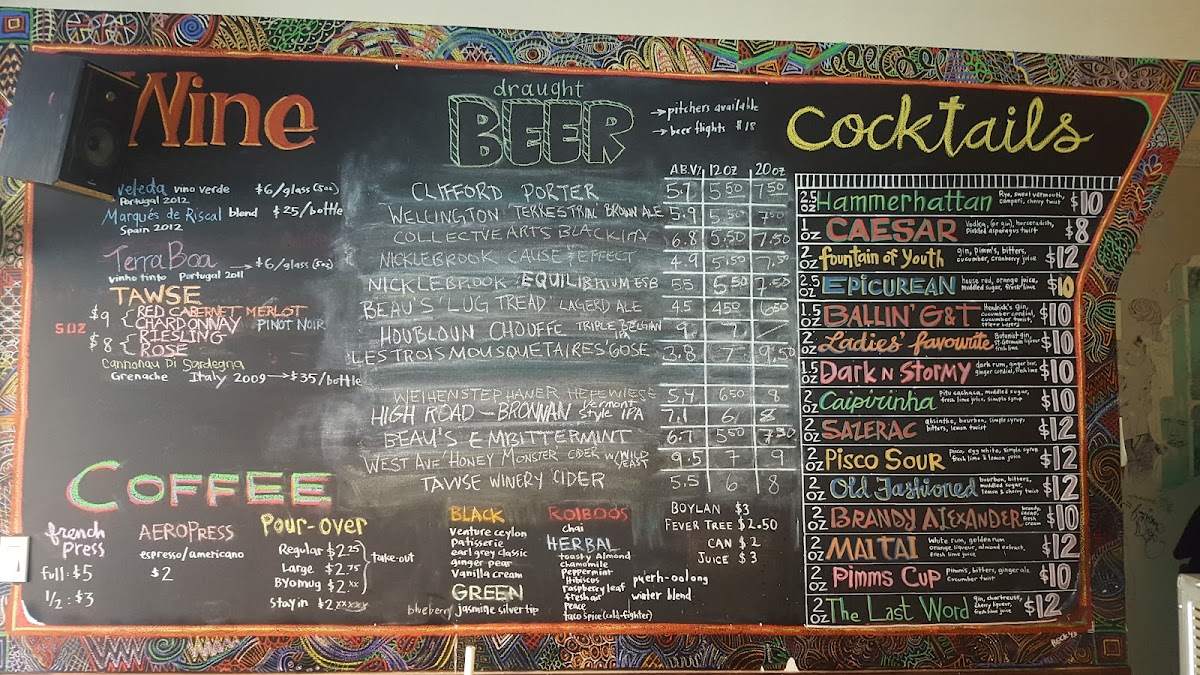 Wine
veleda vino verde $6/glass (5oz)
Portugal 2012
Marqués de Riscal blend $25/bottle
Spain 2012
Terra Boa → $6/glass (5oz)
vinho tinto Portugal 2011
TAWSE
5oz
$9 { RED CABERNET MERLOT
CHARDONNAY PINOT NOIR
$8 { RIESLING
ROSE
Cannonau Di Sardegna
Grenache Italy 2009 → $35/bottle
COFFEE
french press
full: $5
1/2: $3
AEROPRESS
espresso/americano
$2
Pour-over
Regular $2.25
Large $2.75
BYOmug $2.xx
take-out
stay in $2xxxxx
draught
BEER
→ pitchers available
→ beer flights $18
A.B.V. 12 oz 20 oz
CLIFFORD PORTER 5.7 5.50 7.50
WELLINGTON TERRESTRIAL BROWN ALE 5.9 5.50 7.50
COLLECTVE ARTS BLACK IPA 6.8 5.50 7.50
NICKLEBROOK CAUSE & EFFECT 4.9 5.50 7.50
NICKLEBROOK EQUILIBRIUM ESB 55 6.50 7.50
BEAU'S LUG TREAD LAGERD ALE 4.5 450 6.50
HOUBLOUN CHOUFFE TRIPLE BELGIAN IPA 9 7 /
LES TROIS MOUSQUETAIRES GOSE 3.8 9.50
WEIHENSTEPHANER HEFEWIESE 5.4 6.50 8
HIGH ROAD - BRONNAN Vermont Style IPA 7.1 6 8
BEAU'S EMBITTERMINT 6.7 5.50 7.50
WEST AVE HONEY MONSTER CIDER W/ WILD YEAST 9.5 7 9
TAWSE WINERY CIDER 5.5 6 8
BLACK
venture ceylon
Patisserie
earl grey classic
ginger pear
Vanilla cream
GREEN
blueberry jasmine silver tip
ROIBOOS
chai
HERBAL
toasty Almond
chamomile
Peppermint
Hibiscus
raspberry leaf
fresh air
peace
taco spice (cold-fighter)
puerh-oolong
winter blend
BOYLAN $3
FEVER TREE $2.50
CAN $2
JUICE $3
Cocktails
2.5 OZ Hammerhattan Rye, sweet vermouth, campari, cherry twist $10
1 OZ CAESAR Vodka, (or gin), horseradish, Pickled asparagus twist $8
2 OZ fountain of Youth gin, Pimm's, bitters, cucumber, cranberry juice $12
2.5 OZ EPICUREAN house red, orange juice, muddled sugar, fresh lime $10
1.5 OZ BALLIN' G&T Hendrick's gin, cucumber cordial, cucumber twist, celery bitters $10
2 OZ Ladies' favourite Botanist gin, St-Germain liqueur fresh lime $10
1.5 OZ Dark N Stormy dark rum, ginger beer, ginger cordial, fresh lime $10
2 OZ Caipirinha Pitu cachaca, muddled sugar, fresh lime juice, simple syrup $10
2 OZ SAZERAC absinthe, bourbon, simple syrup, bitters, lemon twist $12
2 OZ Pisco Sour pisco, egg white, simple syrup fresh lime & lemon juice $12
2 OZ Old Fashioned bourbon, bitters, muddled sugar, lemon & cherry twist $12
2 OZ BRANDY ALEXANDER brandy, cacao, fresh cream $10
2 OZ MAITAI White rum, golden rum orange, liqueur, almond extract, fresh lime juice $12
2 OZ PIMMS CUP Pimm's, bitters, ginger ale cucumber twist $10
2 OZ The Last Word gin, chartreuse, cherry liqueur, fresh lime juice $12